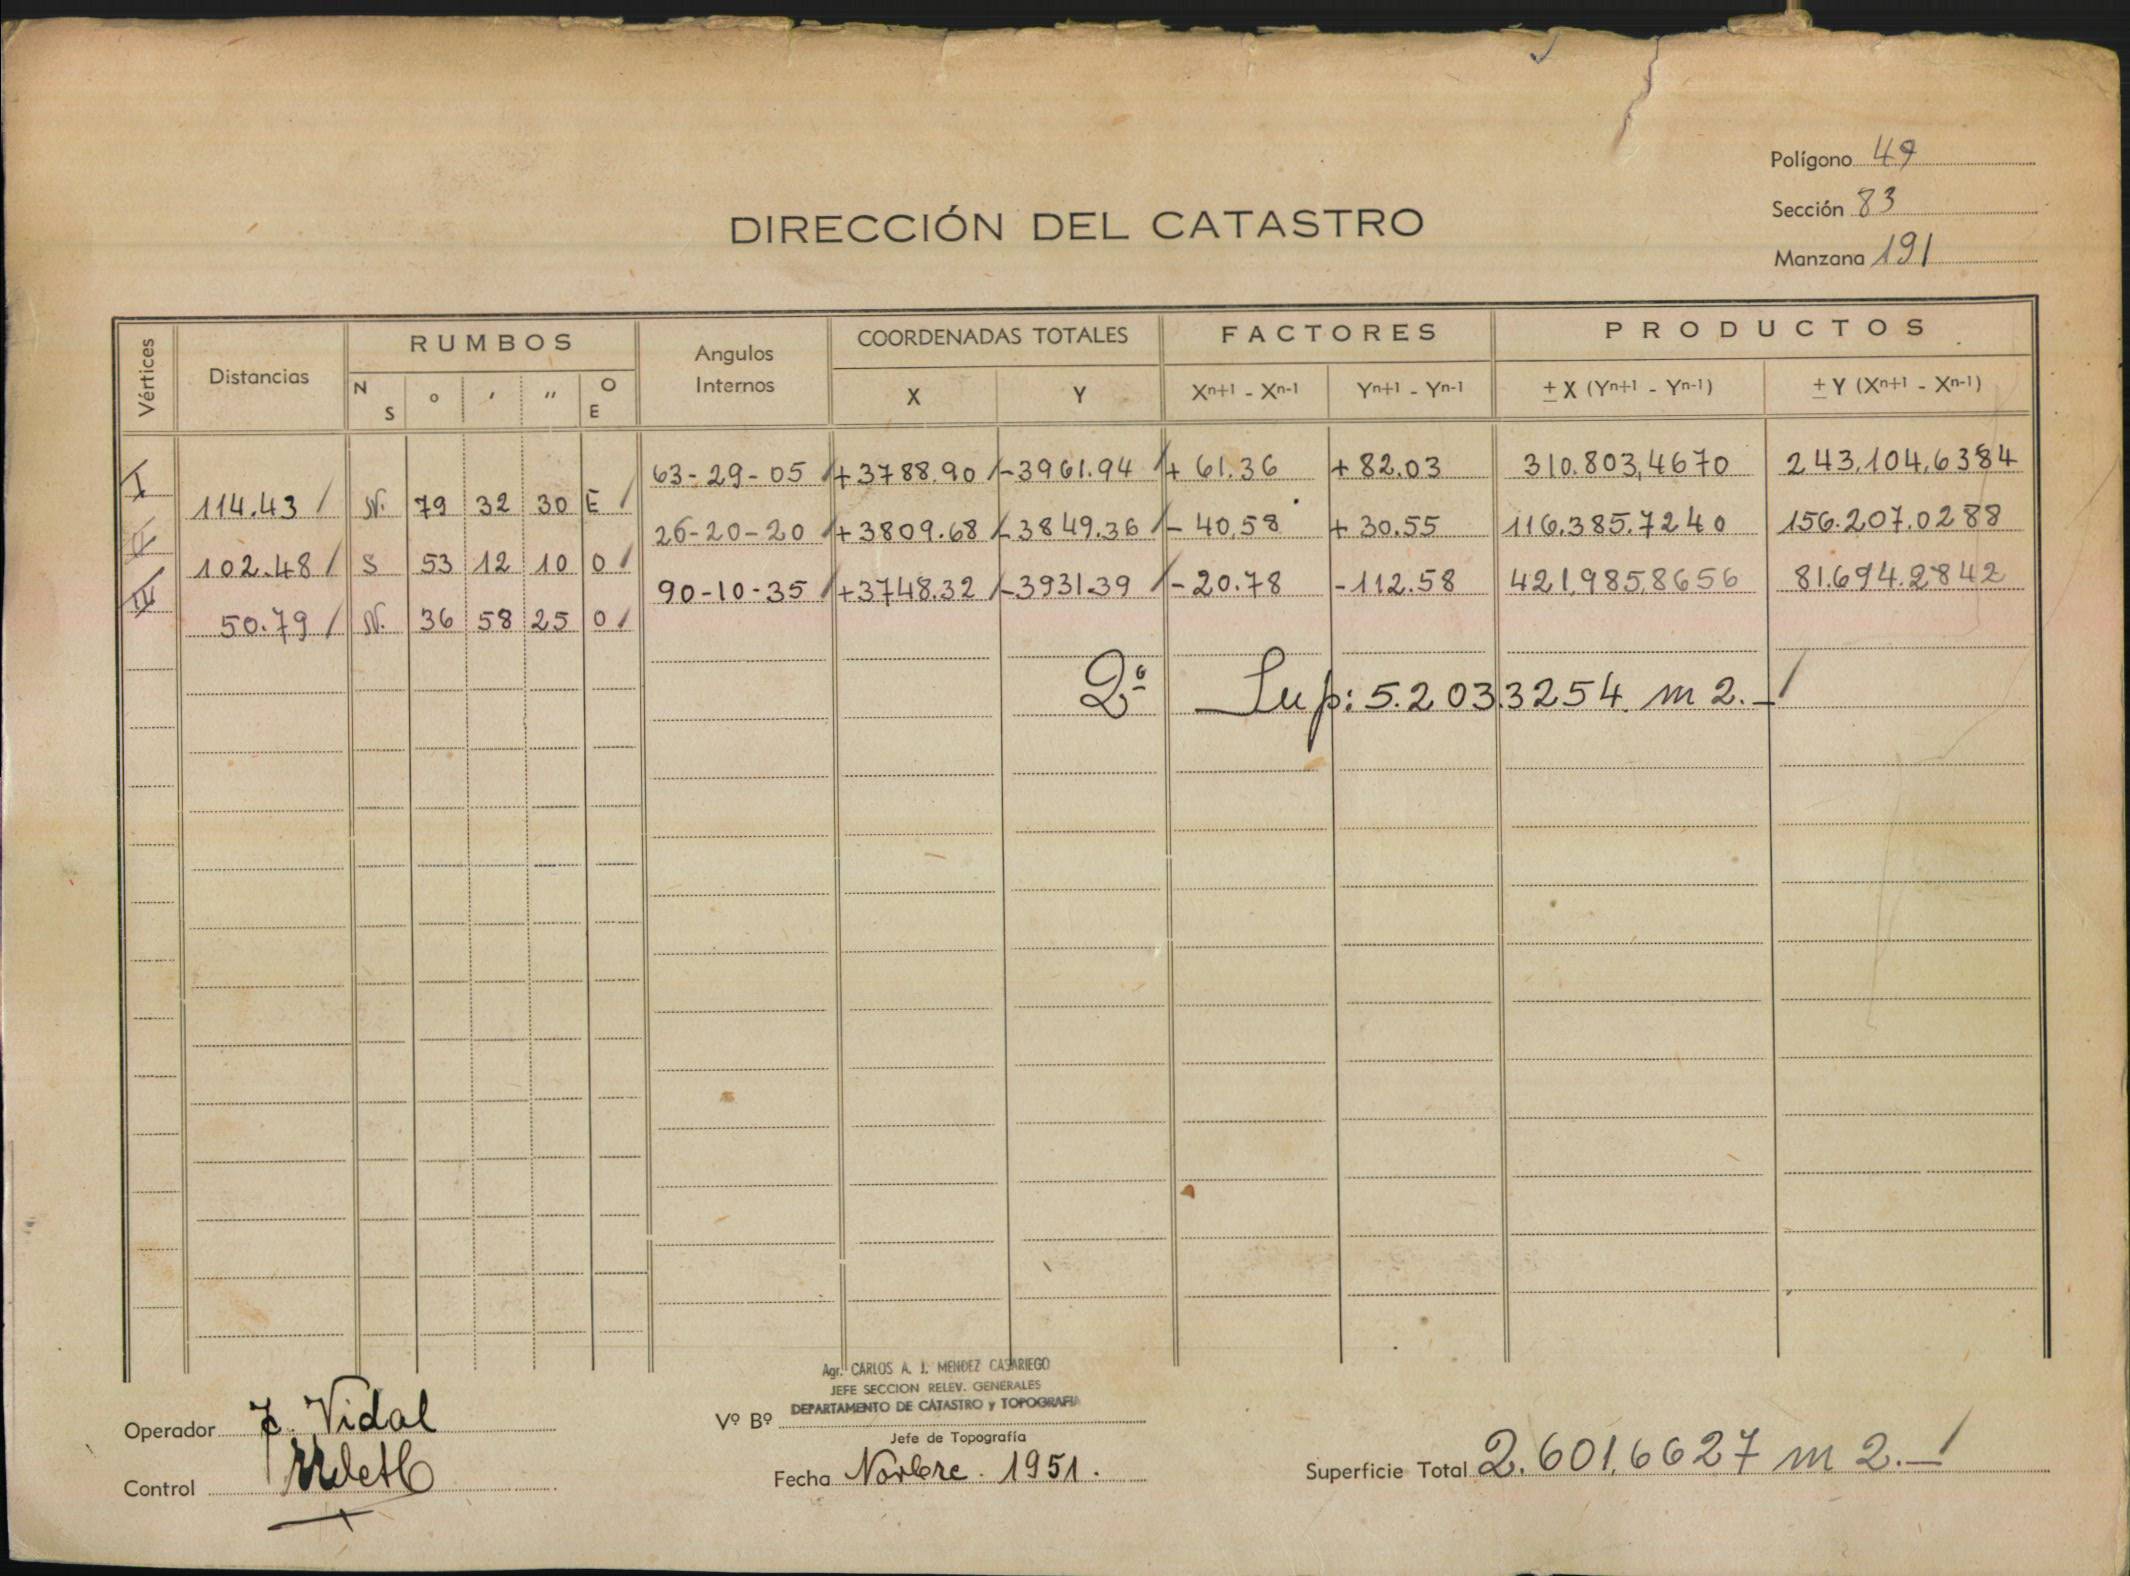 Polígono 49
Sección 83
Manzana 191
DIRECCIÓN DEL CATASTRO
Vértices Distancias RUMBOS Angulos Internos COORDENADAS TOTALES FACTORES PRODUCTOS
N S ° ' '' O E X Y Xn+1 - Xn-1 Yn+1 - Yn-1 ± X (Yn+1 - Yn-1) ± Y (Xn+1 - Xn-1)
I 63-29-05 +3788.90 -3961.94 + 61.36 + 82.03 310.803,4670 243.104,6384
114.43 N. 79 32 30 E
26-20-20 +3809.68 -3849.36 - 40,58 + 30.55 116.385.7240 156.207.0288
102.48 S 53 12 10 O
90-10-35 +3748.32 -3931.39 - 20.78 -112.58 421,985,8656 81.694.2842
50.79 N. 36 58 25 O
2º Sup: 5.203.3254. m 2.-
Agr. CARLOS A. J. MENDEZ CASARIEGO
JEFE SECCION RELEV. GENERALES
DEPARTAMENTO DE CATASTRO y TOPOGRAFIA
Operador Vidal Vº Bº
Jefe de Topografía
Control
Fecha Novbre. 1951.
Superficie Total 2.601,6627 m 2.-